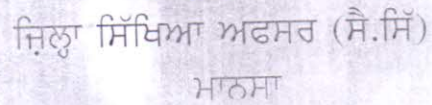 ਜ਼ਿਲ੍ਹਾ ਸਿੱਖਿਆ ਅਫਸਰ (ਸੈ.ਸਿੱ)
ਮਾਨਸਾ